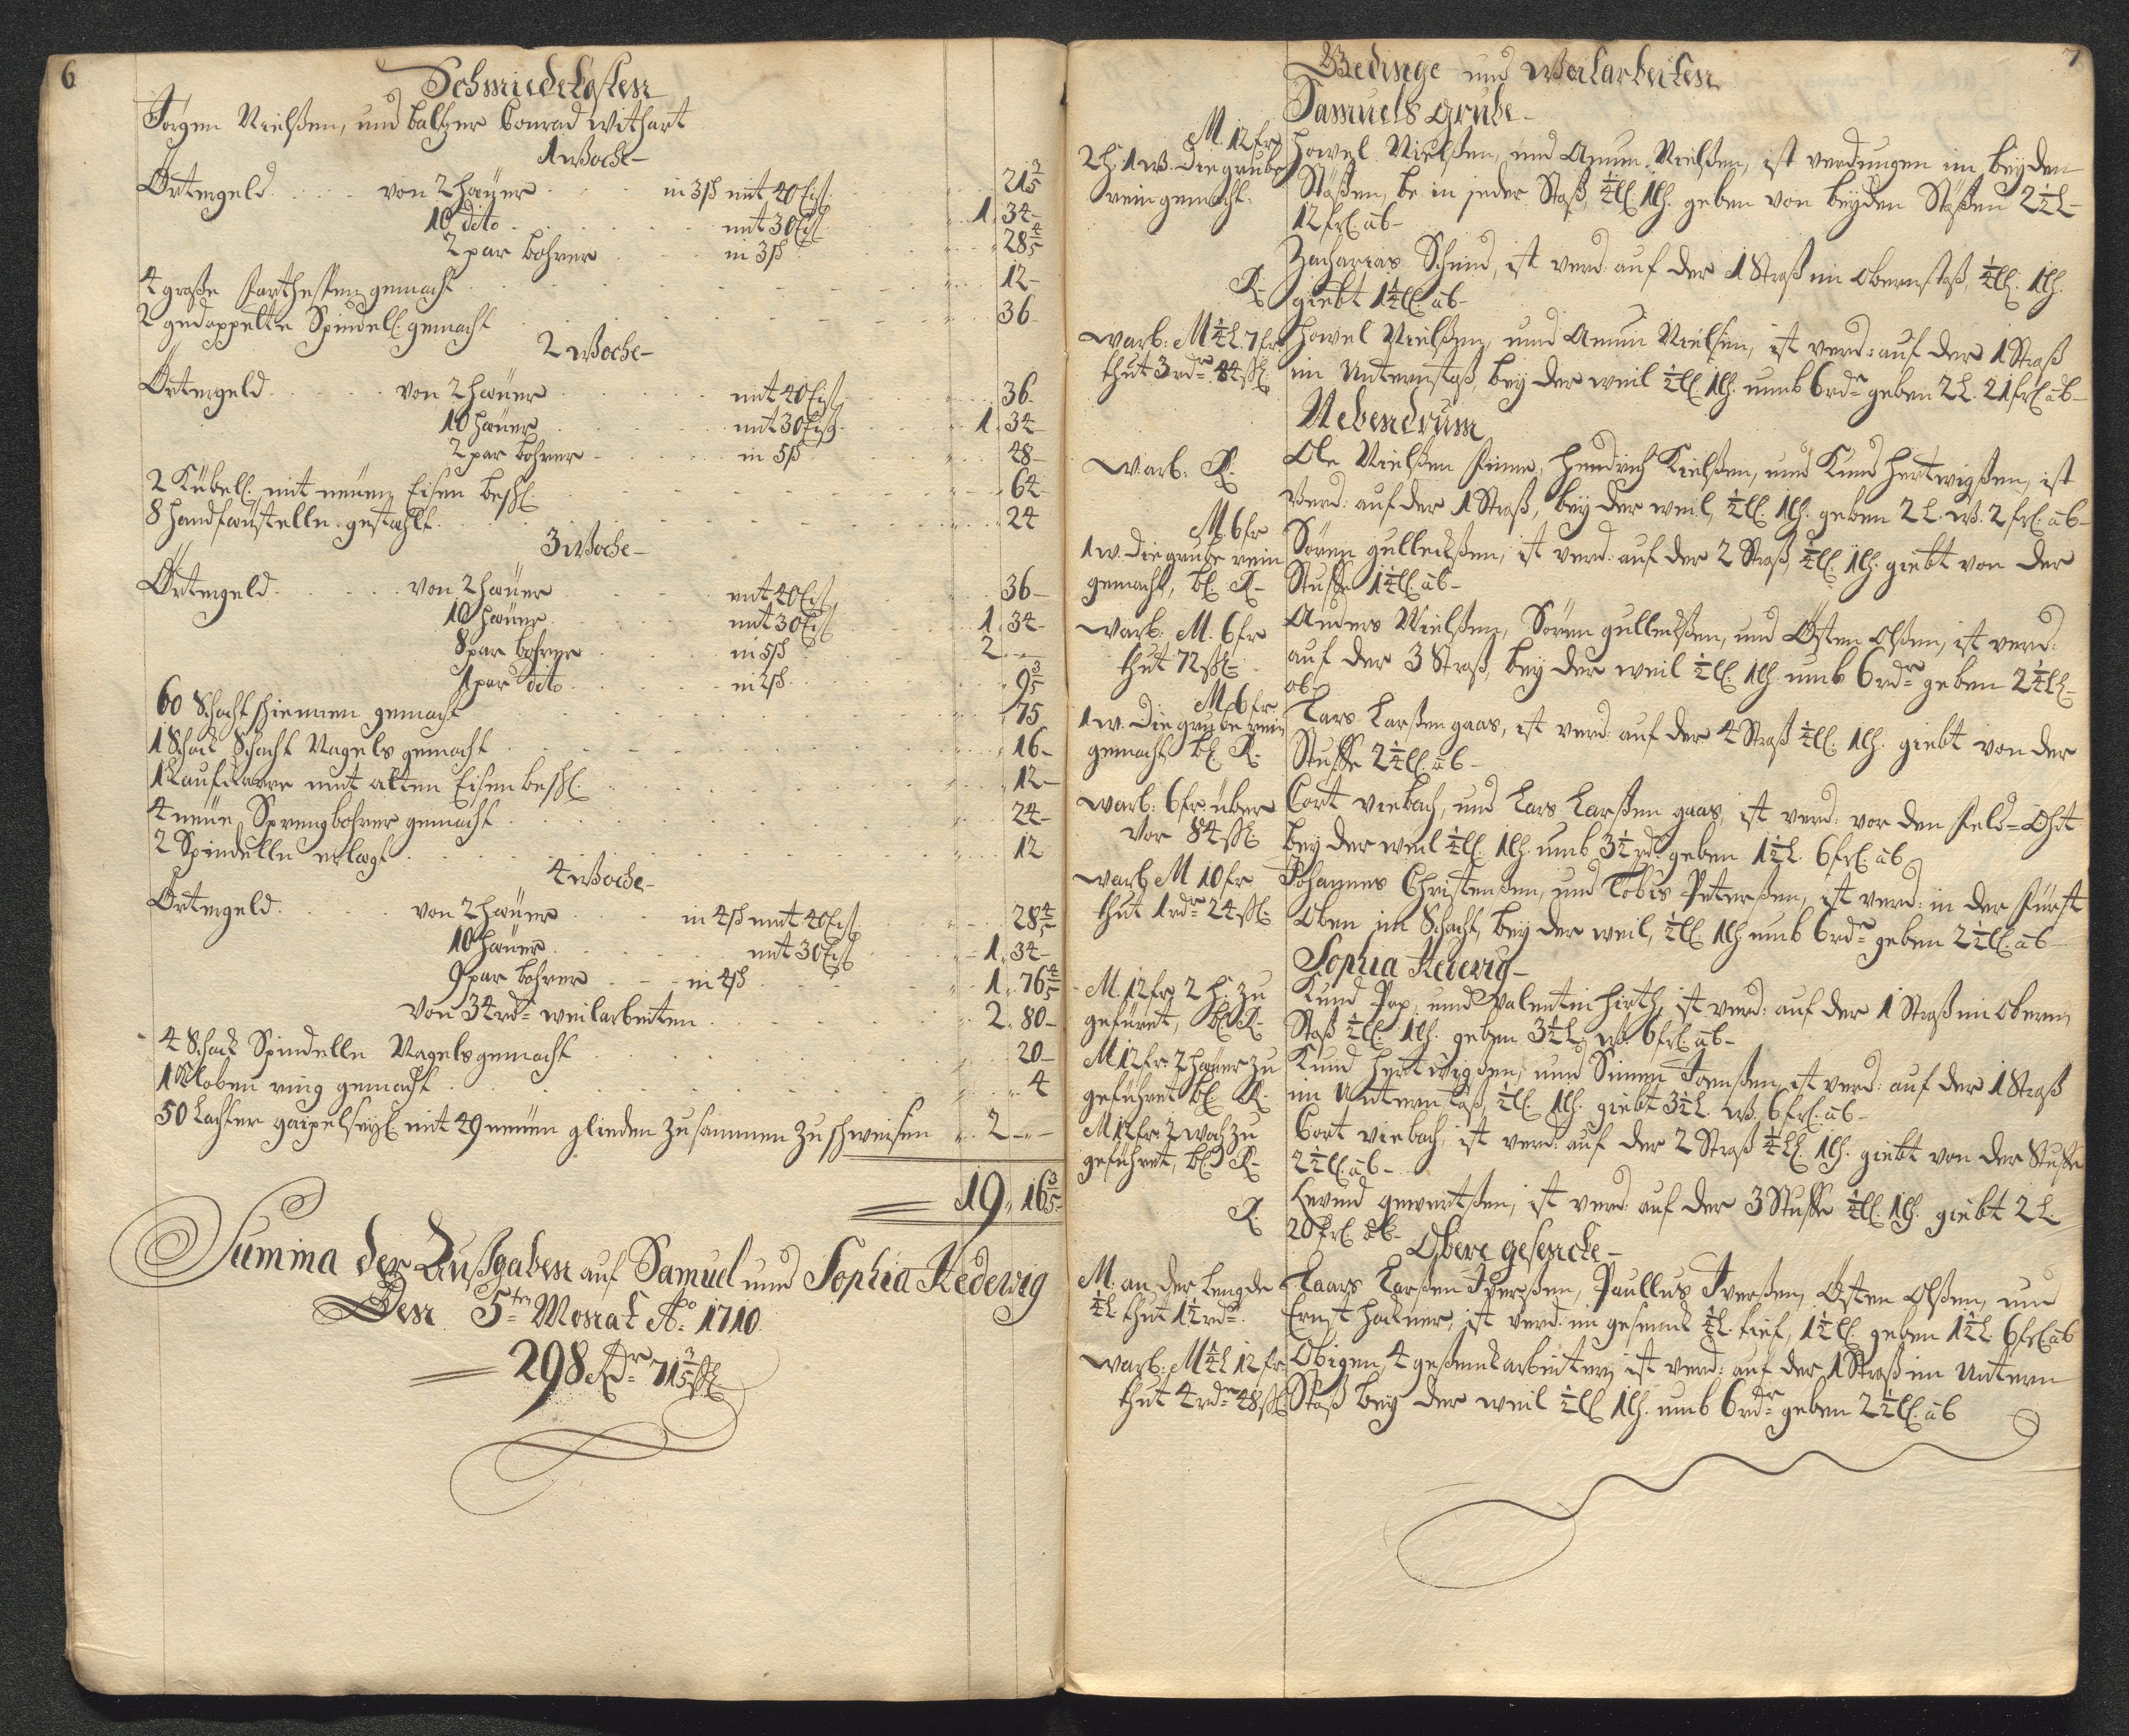 6
Schmiedekosten
Jörgen Nielßen, und Baltzer Conrad Withart
1 Woche-
Örtergeld von 2 Hæüer in 3ß mit 40 Eiß 21 3/5
10 dito mit 30 Eiß 1. 34-
2 par Bohrer in 3ß 28 4/5
4 große gemacht 12-
2 gedoppelte Spindell. gemacht 36
2 Woche-
Örtergeld von 2 Hæüer mit 40 Eiß 36.
10 Hæüer mit 30 Eiß 1. 34
2 par Bohrer in 5ß 48-
2 Kübell. mit neüen Eisen beschl. 64
8 Handfæüstelle gestæhlt 24
3 Woche-
Örtergeld von 2 Hæüer mit 40 Eiß 36-
10 Hæüer mit 30 Eiß 1. 34-
8 par Bohrer in 5ß 2
1 par dito in 4ß 9 3/5
60 Schacht schiennen gemacht 75
1 Schock Schacht Nagels gemacht 16-
1 Laufkarre mit alten Eisen beschl. 12-
4 neüe Sprengbohrer gemacht 24-
2 Spindelln erlægt 12
4 Woche-
Örtergeld von 2 Hæüer in 4ß mit 40 Eiß 28 4/5
10 Hæüer mit 30 Eiß 1. 34-
9 par Bohrer in 4ß 1. 76 4/5
Von 34 rdr weilarbeiten 2. 80-
4 Schock Spindelln Nagels gemacht 20-
1 Kloben ring gemacht 4
50 Lachter gaipelseyl. mit 49 neüen glieder zusammen zu schweisen 2
19. 16 3/5
Summa der Außgaben auf Samuel und Sophia Hedewig
Den 5ten Monat Ao. 1710.
298 Rdr 71 3/5 ßl
7
Gedinge und Weilarbeiten
Samuels Grube-
M. 12 fr.
2 h. 1 W. die grube
rein gemacht.
Howel Nielßen, und Amun Nielßen, ist verdungen im beyden
Stößen, be in jeder Stoß, 1/4 ll. 1 lh. geben von beyden Stößen 2 1/2 L-
12 frl. ab-
Zacharias Schmid, ist verd: auf der 1 Straß im obernstoß, 1/4 ll. 1 lh.
R. giebt 1 1/4 ll. ab-
warb: M 1/4 L. 7 fr
thut 3 rdr 84 ßl
Howel Nielßen, und Amun Nielßen, ist verd: auf der 1 Straß
im Unternstoß, bey der weil 1/2 ll. 1 lh. umb 6 rdr geben 2 L. 21 frl. ab-
Nebendrum
warb: R.
Ole Nielßen Finne, Hendrich Kielßen, und Knud Hertwigßen, ist
Verd: auf der 1 Straß, bey der weil, 1/2 ll. 1 lh. geben 2 L. W. 2 frl. ab-
M. 6 fr
1 w. die grube rein
gemacht, bl. R-
Sören gullichßen, ist verd: auf der 2 Straß, 1/4 ll. 1 lh. giebt von der
Stuffe 1 1/4 ll. ab-
warb: M. 6 fr
thut 72 ßl-
Anders Nielßen, Sören gullichßen, und Östen Olßen, ist verd:
auf der 3 Straß, bey der weil 1/2 ll. 1 lh. umb 6 rdr geben 2 1/4 ll-
ab-
M. 6 fr
1 w. die grube rein
gemacht bl. R.
Lars Larßen gaas, ist verd: auf der 4 Straß 1/4 ll. 1 lh. giebt von der
Stuffe 2 1/4 ll. ab-
warb: 6 fr. über
vor 84 ßl
Cort viebach, und Lars Larßen gaas, ist verd: vor den Feld-Ohrt
bey der weil 1/4 ll. 1 lh. umb 3 1/2 rdr geben 1 1/2 L. 6 frl. ab
warb M 10 fr
thut 1 rdr 24 ßl.
Johannes Christenßen, und Tobis Peterßen, ist verd: in der Fürst
Oben im Schacht, bey der weil, 1/2 ll. 1 lh. umb 6 rdr geben 2 1/2 ll. ab
Sophia Hedewig-
M. 12 fr. 2 h. zu
gefüret, bl. R-
Knud Pop, und Valentin Hirth, ist verd: auf der 1 Straß im obern
Stoß 1/2 ll. 1 lh. geben 3 1/2 L. W. 6 frl. ab-
M 12 fr. 2 Hæüer zu
geführet bl. R.
Knud Hertwigßen, und Simen Joenßen, ist verd: auf der 1 Straß
im Untern toß, 1/2 ll. 1 lh. giebt 3 1/2 L. W. 6 frl. ab-
M 12 fr. 2 woch zu
geführet, bl. R-
Cort viebach, ist verd: auf der 2 Straß 1/4 ll. 1 lh. giebt von der Stuffe
2 1/2 ll. ab-
R.
gewertßen, ist verd: auf der 3 Stuffe 1/4 ll. 1 lh. giebt 2 L-
20 frl. ab-
Obere gesencke-
M. an der Lengde
1/4 L. thut 1 1/2 rdr.
Laars Larßen Iverßen, Paullus Iverßen, Östen Olßen, und
Ernst Hackner, ist verd: im gesenck 1/4 L. tief, 1 1/2 ll. geben 1 1/2 L. 6 frl. ab
warb: M 1/4 L 12 fr
thut 4 rdr 48 ßl.
Obigen 4 geßenckarbeiter, ist verd: auf der 1 Straß im Untern
Stoß bey der weil 1/2 ll 1 lh. umb 6 rdr geben 2 1/2 ll. ab